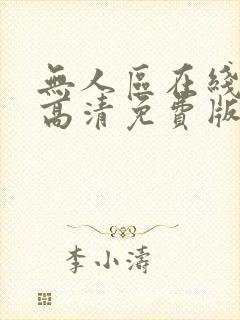 無人區在綫
高清免費版
李小濤